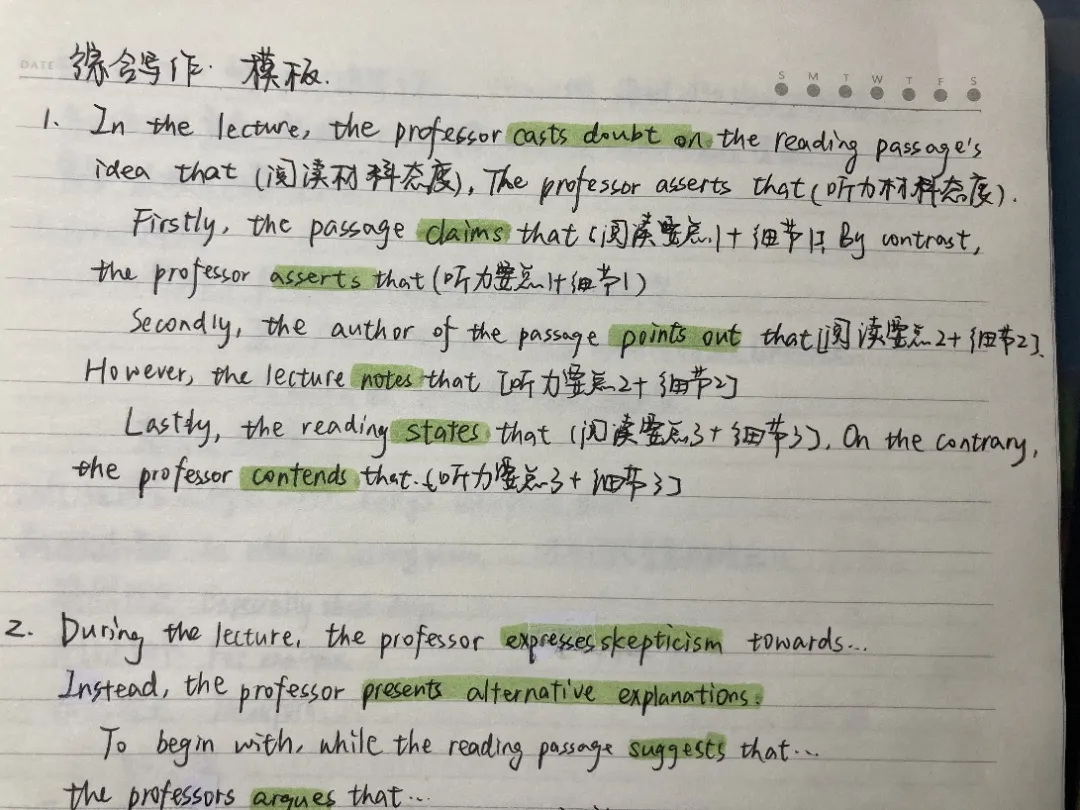 DATE
综合写作. 模板.
S M T W T F S
1. In the lecture, the professor casts doubt on the reading passage's
idea that (阅读材料态度), The professor asserts that (听力材料态度).
Firstly, the passage claims that (阅读要点1+细节1]; By contrast,
the professor asserts that (听力要点1+细节1)
Secondly, the author of the passage points out that [阅读要点2+细节2].
However, the lecture notes that [听力要点2+细节2]
Lastly, the reading states that (阅读要点3+细节3]. On the contrary,
the professor contends that. [听力要点3+细节3]
2. During the lecture, the professor expresses skepticism towards...
Instead, the professor presents alternative explanations.
To begin with, while the reading passage suggests that...
the professors argues that...